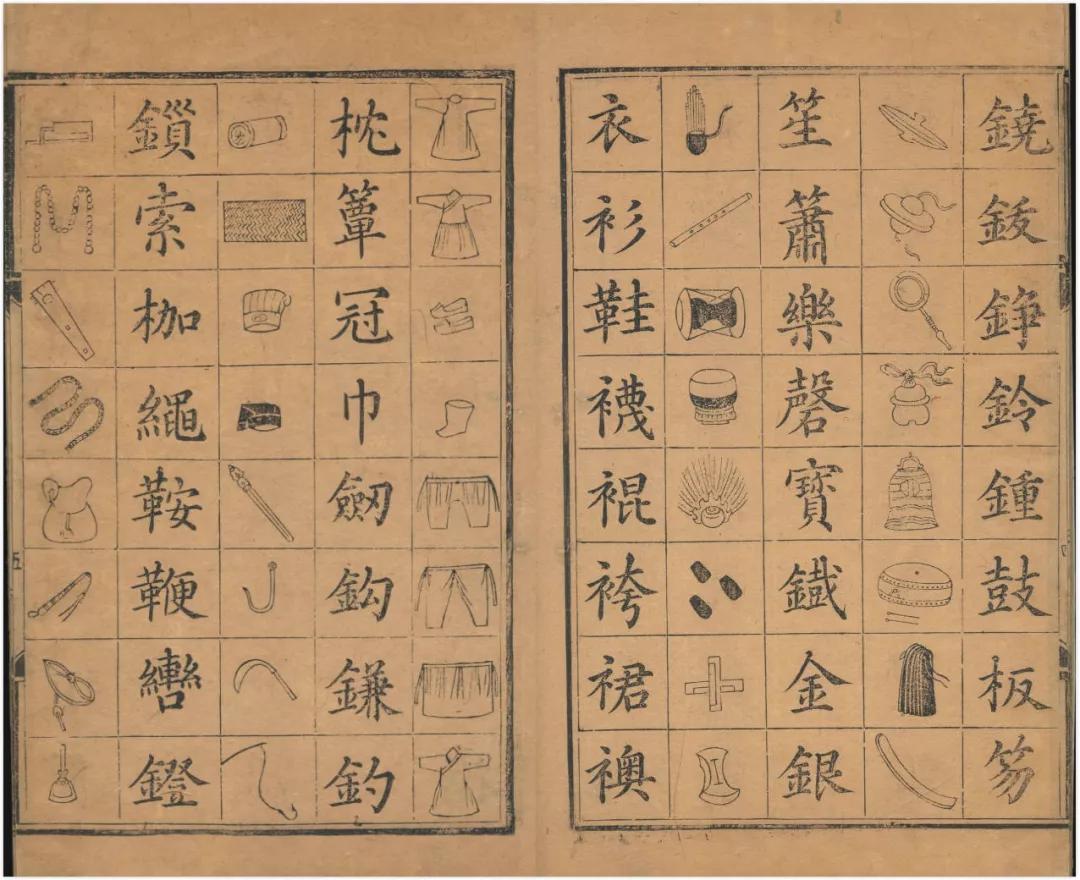 鐃鈸錚鈴鍾鼓板笏
笙簫樂磬寶鐵金銀
衣衫鞋襪裩袴裙襖
枕簟冠巾劒鈎鎌釣
鎻索枷繩鞍鞭轡鐙
五